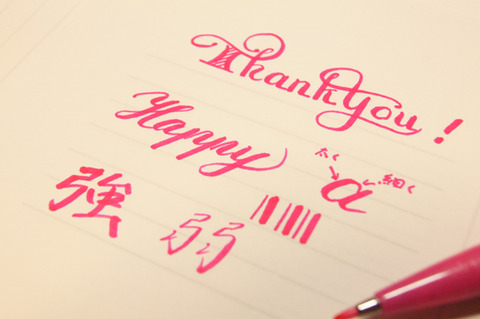 Thank you!
Happy
太く
細く
a
強 弱